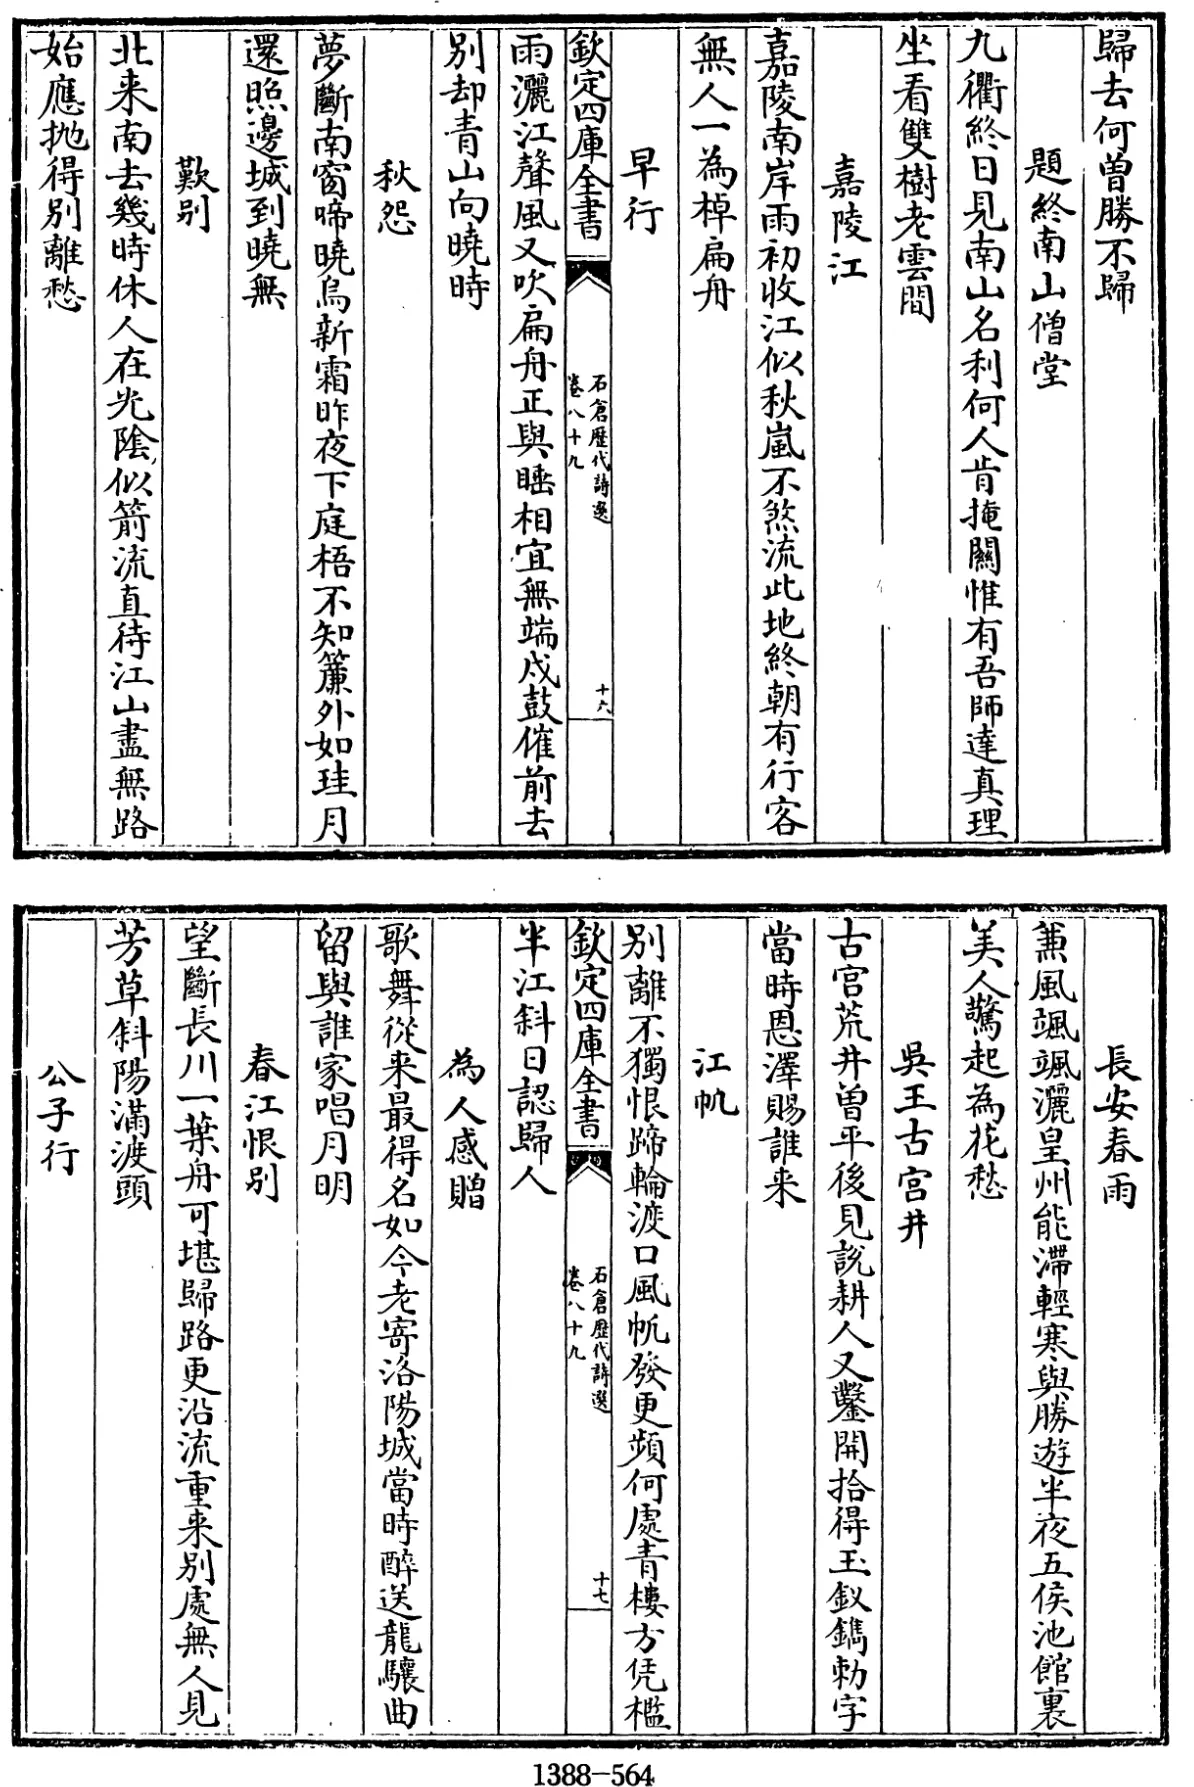 歸去何曽勝不歸
題終南山僧堂
九衢終日見南山名利何人肯掩關惟有吾師達真理
坐看雙樹老雲間
嘉陵江
嘉陵南岸雨初收江似秋嵐不煞流此地終朝有行客
無人一為棹扁舟
早行
欽定四庫全書
石倉歷代詩選
卷八十九
十六
雨灑江聲風又吹扁舟正與睡相宜無端戍鼓催前去
別却青山向曉時
秋怨
夢斷南窗啼曉烏新霜昨夜下庭梧不知簾外如珪月
還照邊城到曉無
歎別
北来南去幾時休人在光陰似箭流直待江山盡無路
始應抛得別離愁
長安春雨
兼風颯颯灑皇州能滯輕寒與勝遊半夜五侯池館裏
美人驚起為花愁
吳王古宮井
古宮荒井曽平後見説耕人又鑿開拾得玉釵鐫勅字
當時恩澤賜誰来
江帆
別離不獨恨蹄輪渡口風帆發更頻何處青樓方凭檻
欽定四庫全書
石倉歷代詩選
卷八十九
十七
半江斜日認歸人
為人感贈
歌舞從来最得名如今老寄洛陽城當時醉送龍驤曲
留與誰家唱月明
春江恨別
望斷長川一葉舟可堪歸路更沿流重来別處無人見
芳草斜陽滿渡頭
公子行
1388-564